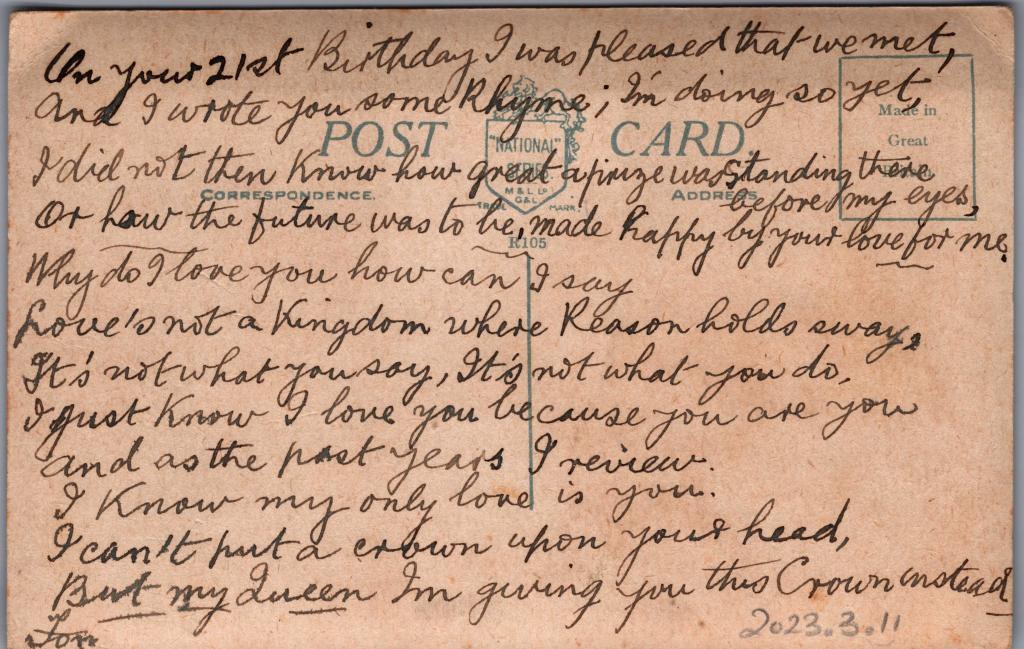 On your 21st Birthday I was pleased that we met,
And I wrote you some Rhyme; I'm doing so yet,
Made in
Great
POST CARD.
"NATIONAL"
SERIES
M & L Ld
G & L
TRADE MARK.
I did not then Know how great a prize was standing there
before my eyes,
CORRESPONDENCE.
ADDRESS
Or how the future was to be, made happy by your love for me.
R105
Why do I love you how can I say
Love's not a Kingdom where Reason holds sway,
It's not what you say, It's not what you do,
I just Know I love you because you are you
And as the past years I review.
I Know my only love is you.
I can't put a crown upon your head,
But my Queen I'm giving you this Crown instead
2023.3.11